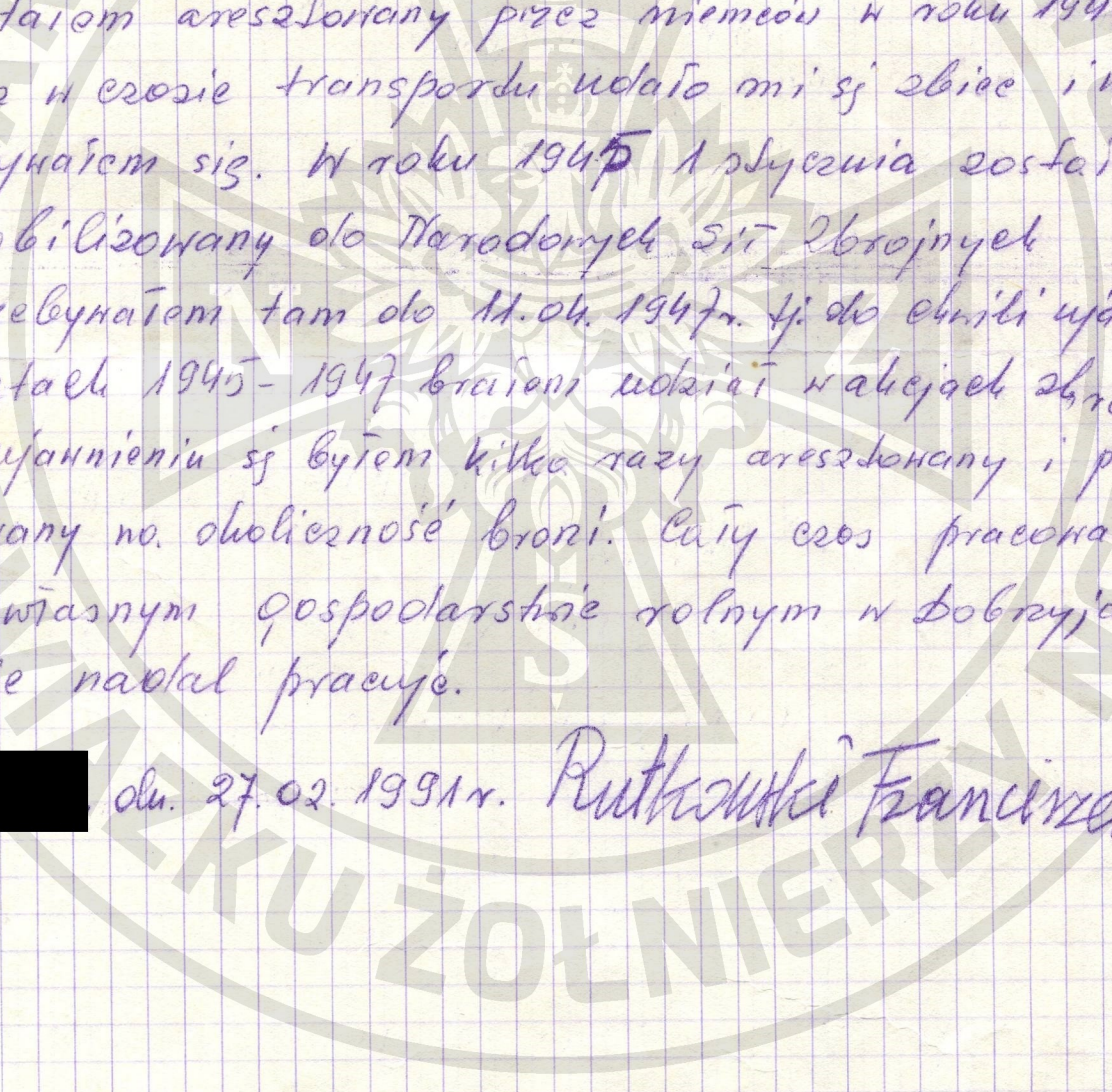 tałem aresztowany przez niemców w roku 194
z w czasie transportu udało mi sj zbiec i
ywałem się. W roku 1945 1 stycznia zostal
bilizowany do Narodowych Sił Zbrojnych
zebywałem tam do 11.04.1947r. tj. do chwili uja
tach 1945-1947 brałem udział w akcjach zbr
ujawnieniu sj byłem kilka razy aresztowany i p
wany na okoliczność broni. Cały czas pracowa
własnym gospodarstwie rolnym w Dobrzyj
e nadal pracuję.
, dn. 27.02.1991r. Rutkowski Francisze
N Z
S
WIĄZKU ŻOŁNIERZY N